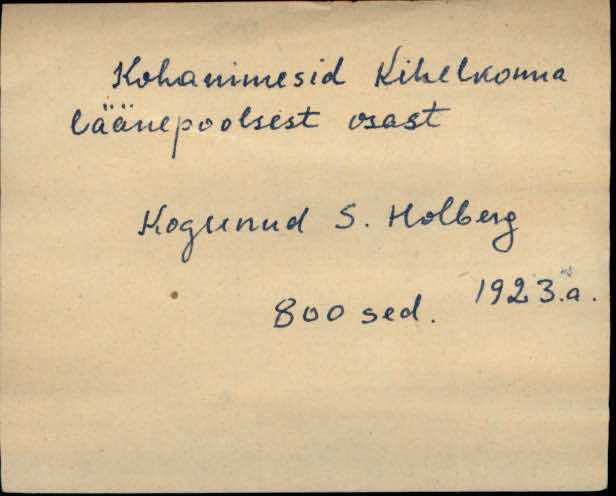 Kohanimesid Kihelkonna
läänepoolsest osast
Kogunud S. Holberg
800 sed. 1923.a.